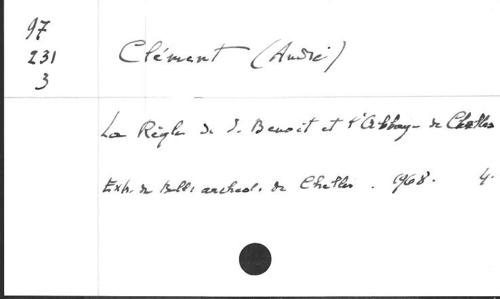 97
231
3
Clément (André)
La Règle de S. Benoit et l'Abbaye de Chelles
Extr. de Bull. archeol. de Chelles. 1968. 4.